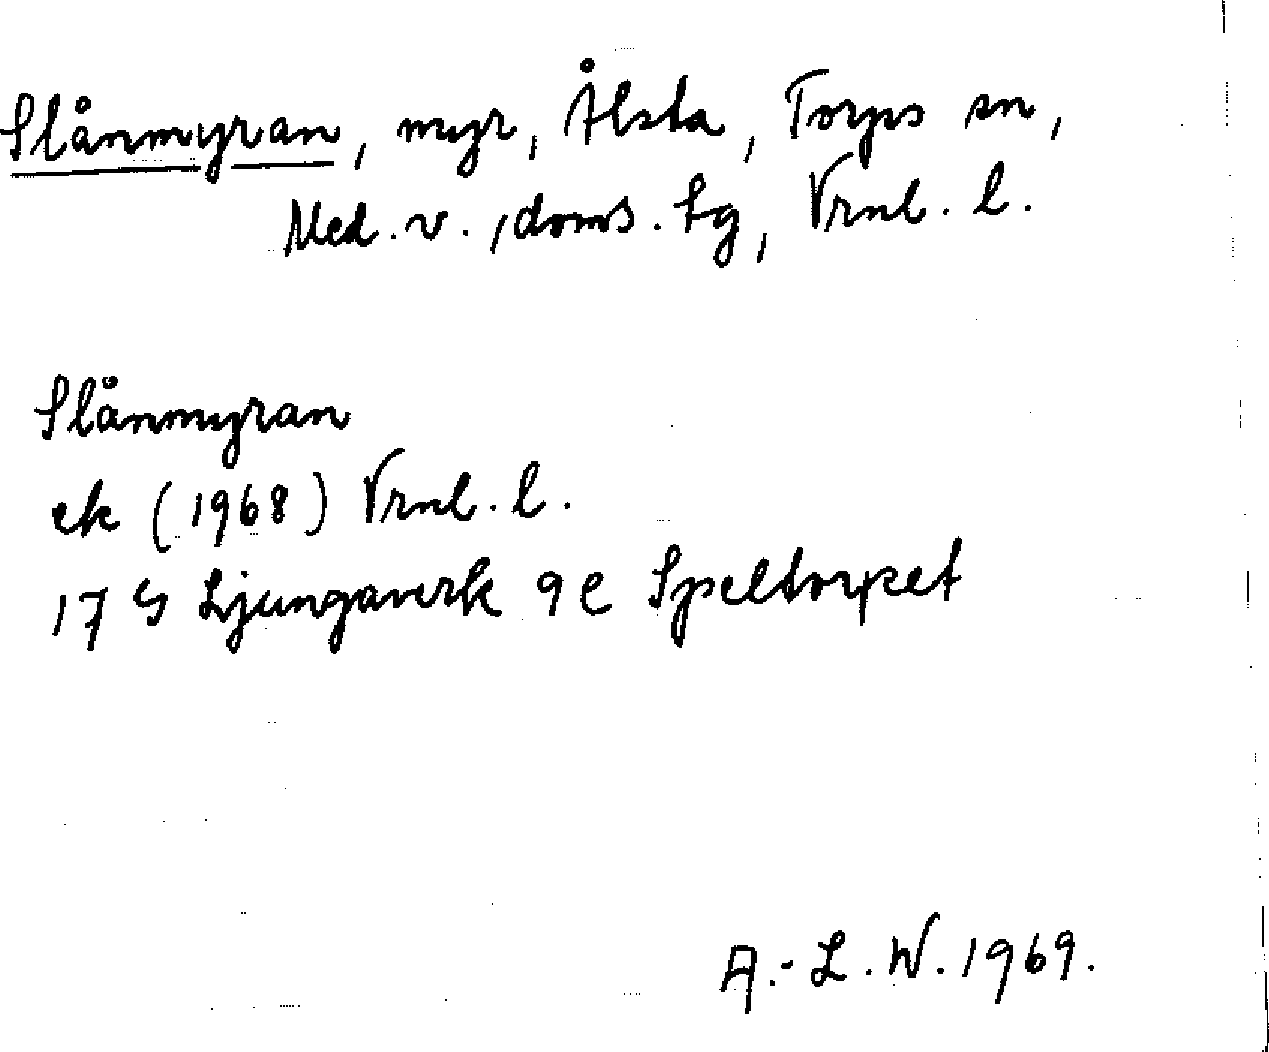 Slånmyran, myr, Ålsta, Torps sn,
Med. v., doms. Lg, Vrnl. l.
Slånmyran
ek (1968) Vrnl. l.
17 G Ljungaverk 9 e Speltorpet
A.-L. W. 1969.